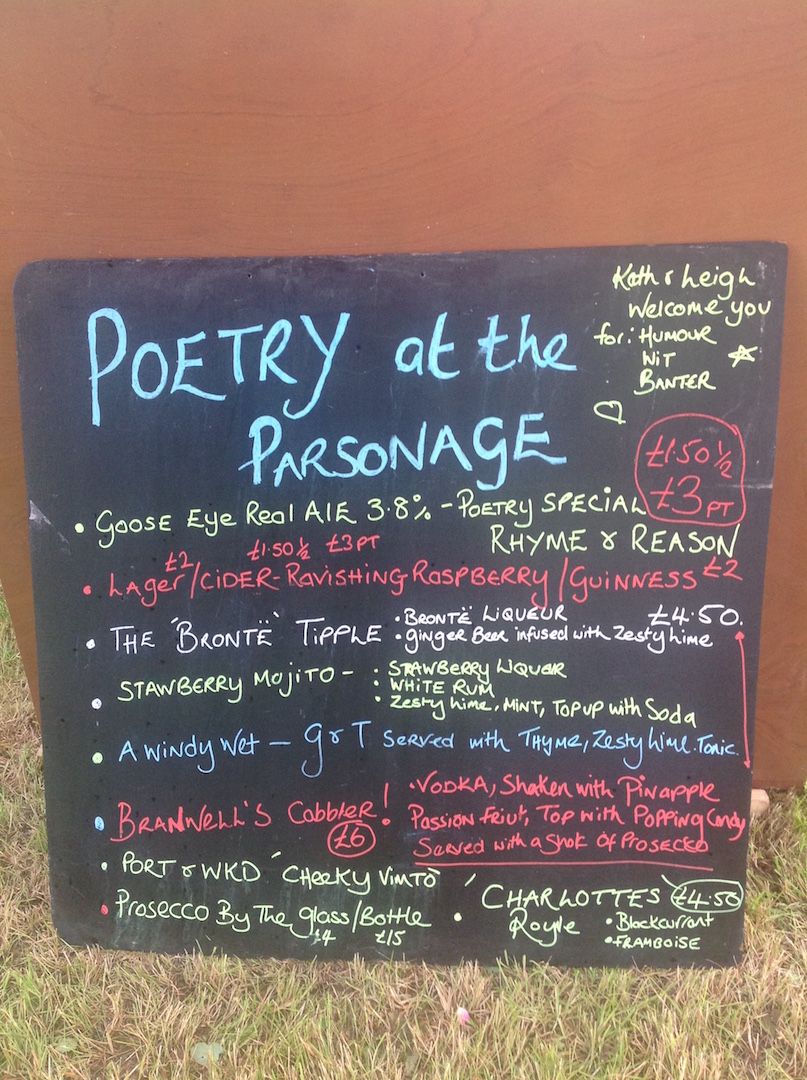 Kath & Leigh
Welcome you
for: HUMOUR
WIT
BANTER
POETRY at the
PARSONAGE
£1.50 ½
£3 PT
• Goose Eye Real AlE 3.8% - POETRY SPECIAL
RHYME & REASON
£2 £1.50 ½ £3 PT
• Lager/CIDER-Ravishing Raspberry/Guinness £2
• THE 'BRONTË' TIPPLE • BRONTË LiQUEUR £4.50.
• ginger Beer infused with Zesty Lime
• STAWBERRY MOJITO - : STAWBERRY LIQUER
: WHITE RUM
: Zesty Lime, MINT, TOP UP with Soda
• A Windy Wet - G & T Served with THYME, Zesty Lime. Tonic.
• BRANWELL'S Cobbler! • VODKA, Shaken with PiNapple
£6 Passion Feiut, Top with POPPING Candy
Served with a Shot OF PROSECCO
• PORT & WKD 'CHEEKY VIMTO'
• Prosecco By The glass/Bottle
£4 £15
• CHARLOTTES £4.50
Royle • Blackcurrant
• FRAMBOISE